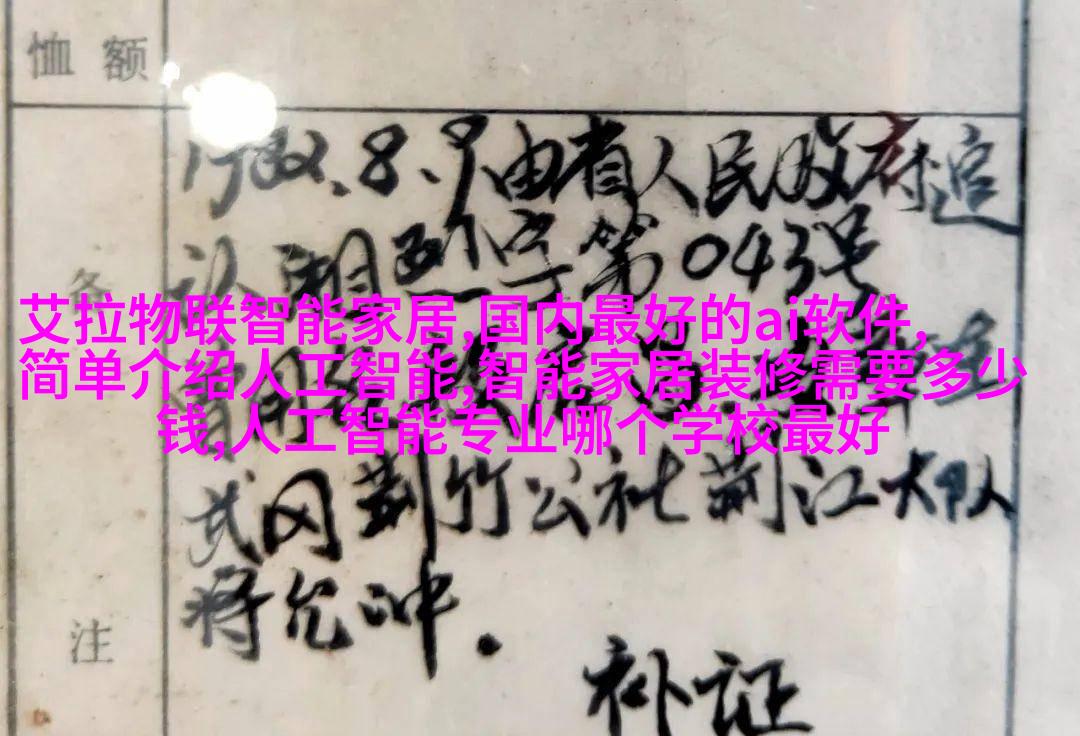 恤额
备
注
1982.8.9由省人民政府追
认湘烈字第043号
艾拉物联智能家居,国内最好的ai软件,
简单介绍人工智能,智能家居装修需要多少
钱,人工智能专业哪个学校最好
武冈荆竹公社荆江大队
蒋允冲.
补证